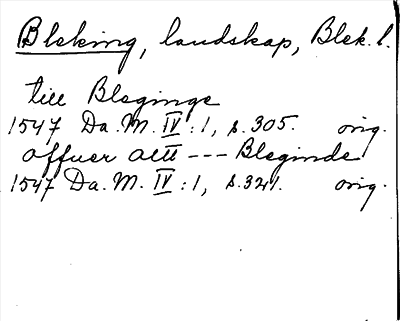 Bleking, landskap, Blek. l.
till Bleginge
1547 Da. M. IV : 1, s. 305. orig.
offuer altt --- Bleginde
1547 Da. M. IV : 1, s. 321. orig.